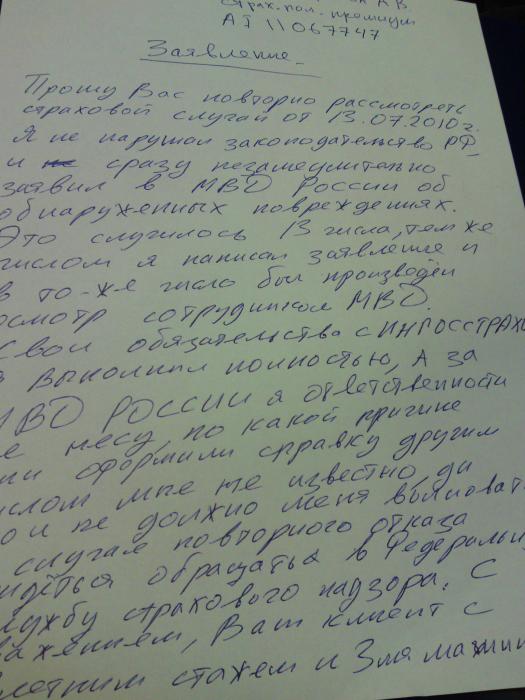 А В.
страх. пол. премиум
АI 11067747
Заявление
Прошу Вас повторно рассмотреть
страховой случай от 13.07.2010г.
Я не нарушал законодательство РФ
и сразу незамедлительно
заявил в МВД России об
обнаруженных повреждениях.
Это случилось 13 числа, тем же
числом я написал заявление и
в то-же число был произведён
осмотр сотрудником МВД.
Свои обязательства с ИНГОССТРАХО
я выполнил полностью, А за
МВД РОССИИ я ответственности
не несу, по какой причине
они оформили справку другим
числом мне не известно, да
и не должно меня волновать
случае повторного отказа
обращаться в Федеральн
службу страхового надзора. С
уважением, Ваш клиент с
летним стажем и 3мя машин